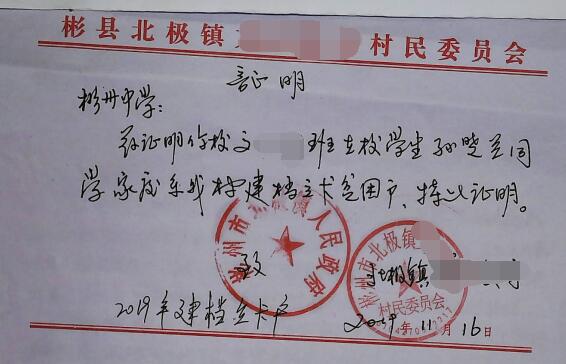 彬县北极镇 村民委员会
证明
彬州中学:
兹证明你校文 班在校学生孙晓兰同
学家庭系我村建档立卡贫困户、特此证明。
彬州市北极镇人民政府
致
北极镇
彬州市北极镇
村民委员会
2019年建档立卡户
2019年11月16日